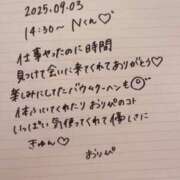 2025.09.03
14:30〜 Nくん♡
仕事やったのに時間
見つけて会いに来てくれてありがとう♡
楽しみにしてたバウムクーヘンも
体ふいてくれたりおりぴのコト
いっぱい気使ってくれて優しさに
きゅん♡
おりぴ